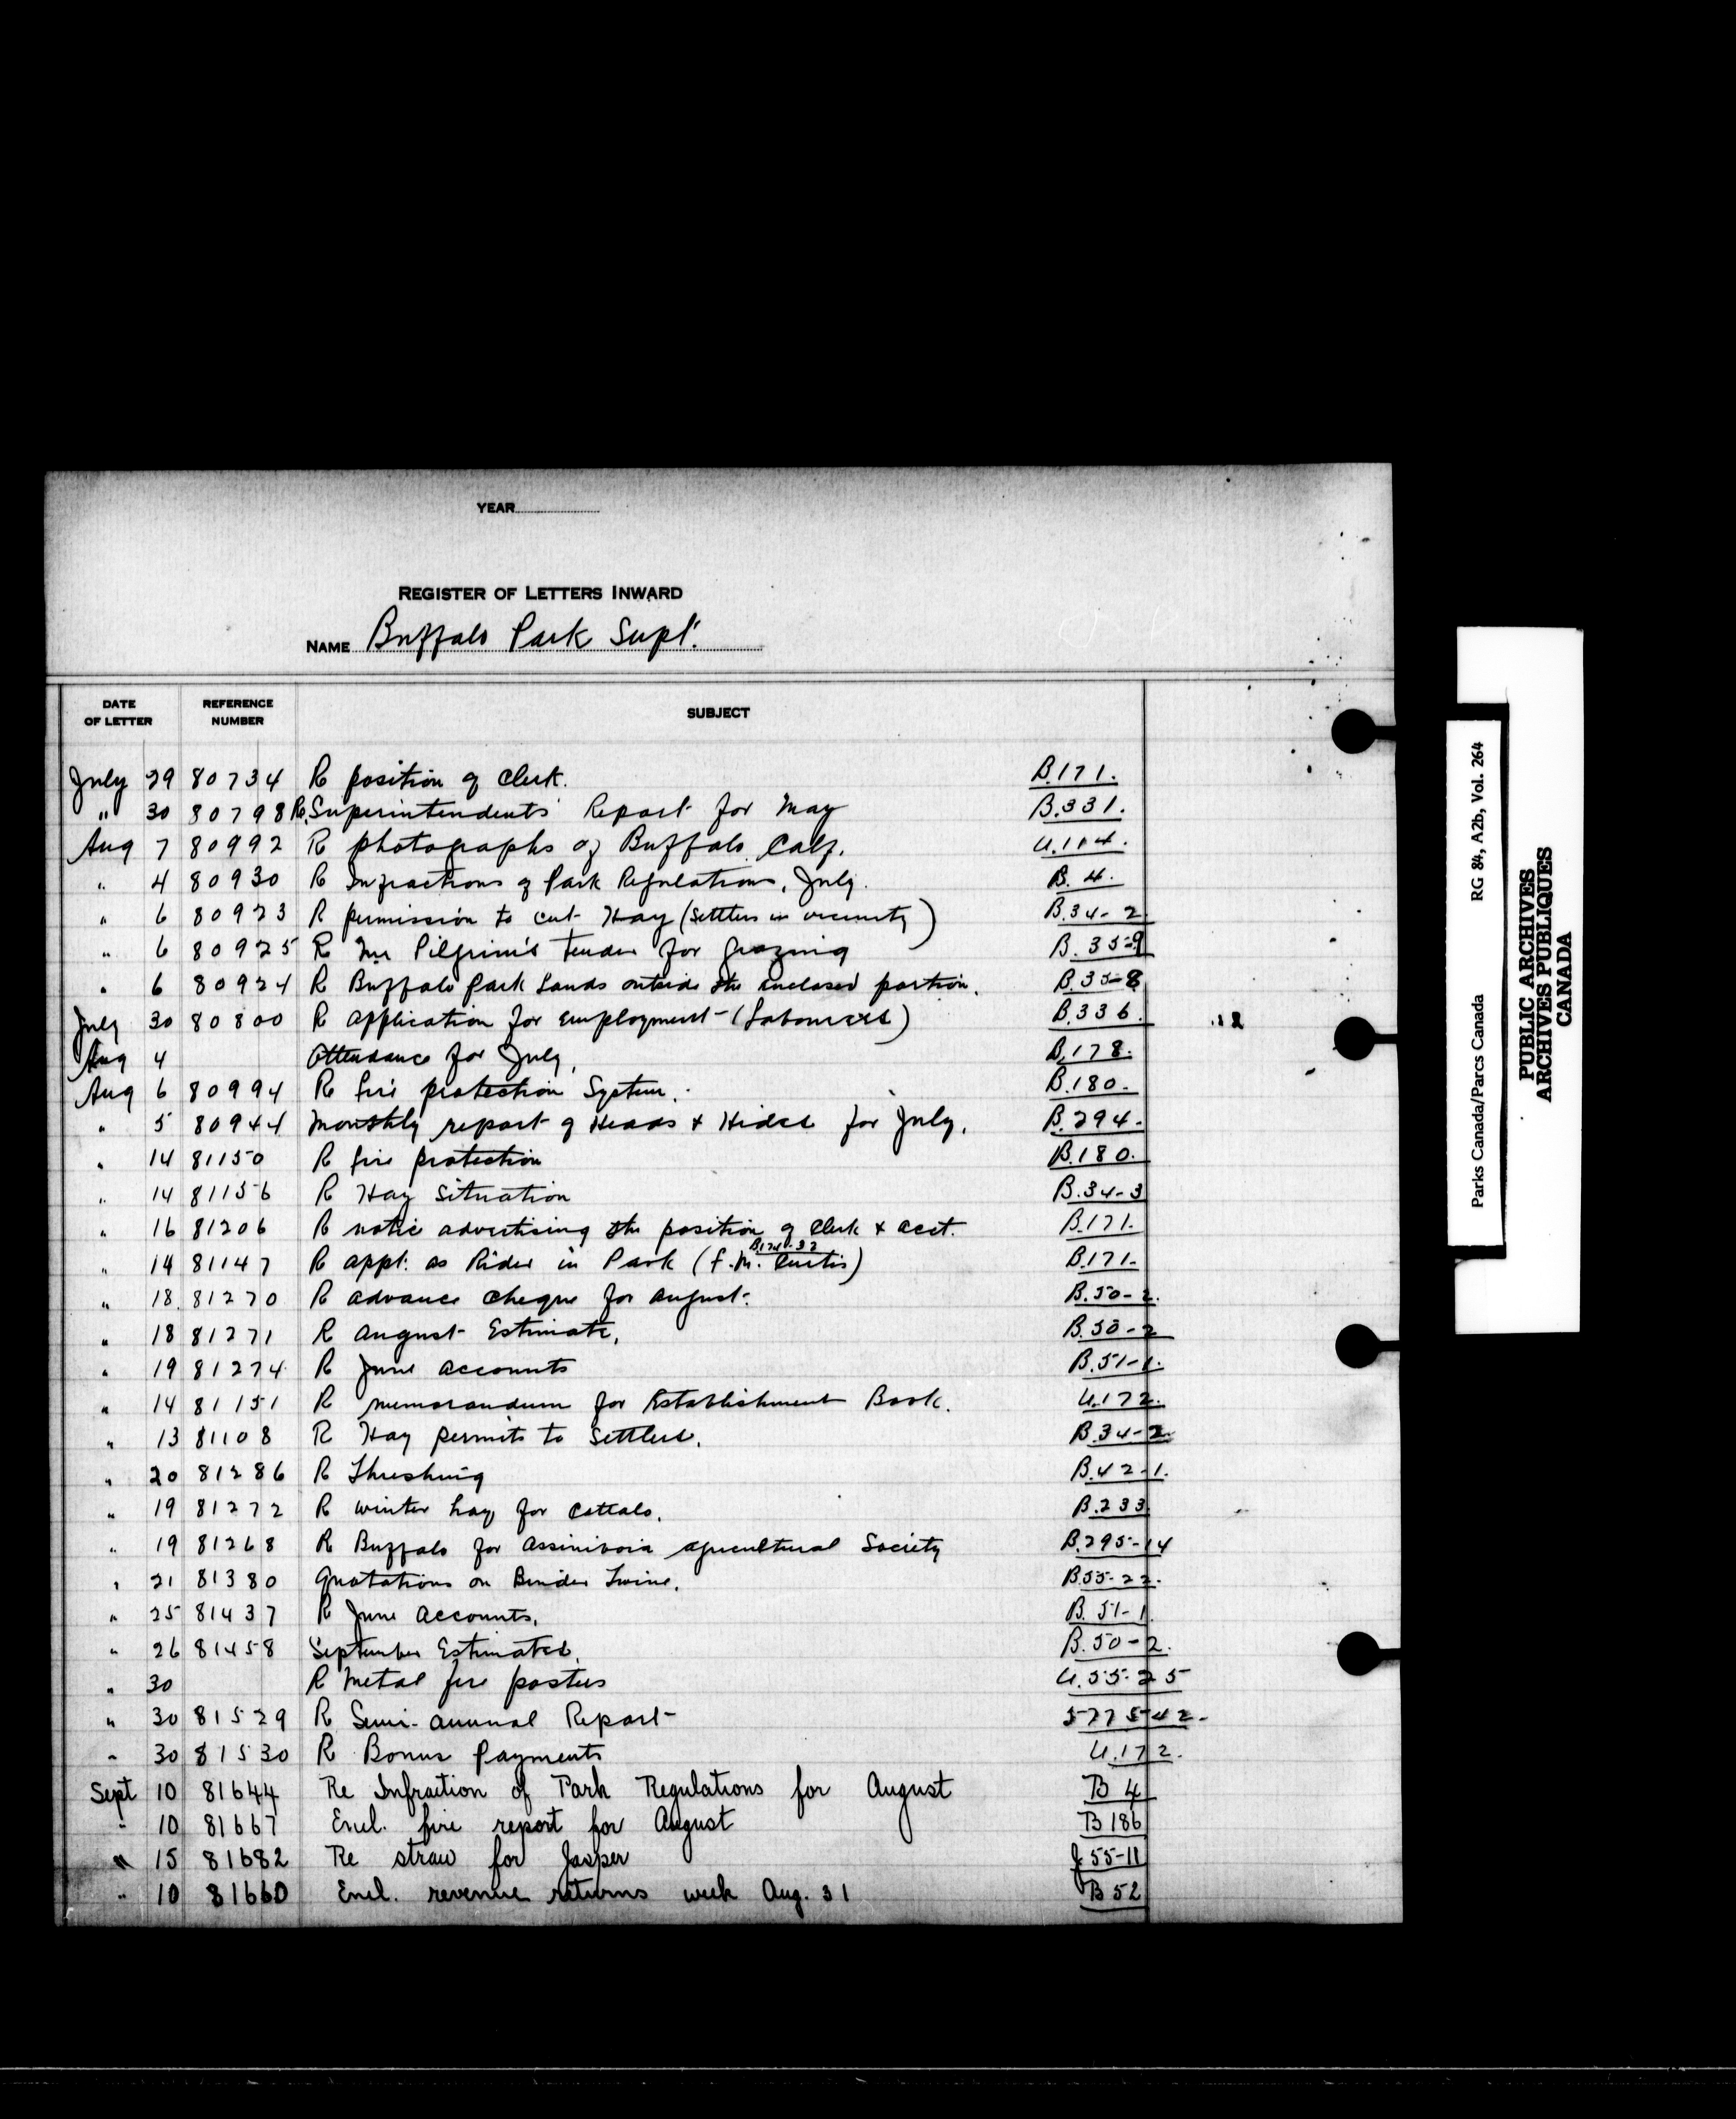 YEAR
REGISTER OF LETTERS INWARD
NAME Buffalo Park Supt.
DATE OF LETTER REFERENCE NUMBER SUBJECT
July 29 80734 R position of Clerk. B.171.
" 30 80798 Re Superintendents' Report for May B.331.
Aug 7 80992 R photographs of Buffalo Calf. U.104.
" 4 80930 R Infractions of Park Regulations, July. B. 4.
" 6 80923 R permission to cut Hay (Settlers in vicinity) B.34-2
" 6 80925 R Mr Pilgrim's tender for grazing B.35-9
" 6 80924 R Buffalo Park Lands outside the enclosed portion. B.35-8
July 30 80800 R application for Employment - (Labourers) B.336.
Aug 4 Attendance for July. B.178.
Aug 6 80994 R fire protection System. B.180.
" 5 80944 Monthly report of Heads & Hides for July. B.294.
" 14 81150 R fire protection B.180.
" 14 81156 R Hay Situation B.34-3
" 16 81206 R notice advertising the position of Clerk & acct. B.171.
" 14 81147 R appt. as Rider in Park (F.M. Curtis) B.174-32 B.171.
" 18 81270 R advance cheque for August. B.50-2.
" 18 81271 R August Estimate. B.50-2
" 19 81274 R June accounts B.51-1.
" 14 81151 R memorandum for Establishment Book. U.172.
" 13 81108 R Hay permits to Settlers. B.34-2.
" 20 81286 R Threshing B.42-1.
" 19 81272 R winter hay for Cattalo. B.233
" 19 81268 R Buffalo for Assiniboia Agricultural Society B.295-14
" 21 81380 Quotations on Binder Twine. B.55-22.
" 25 81437 R June Accounts. B.51-1.
" 26 81458 September Estimates. B.50-2.
" 30 R Metal fire posters U.55-25
" 30 81529 R Semi-annual Report 577542.
" 30 81530 R Bonus Payments U.172.
Sept 10 81644 Re Infraction of Park Regulations for August B 4
" 10 81667 Encl. fire report for August B 186
" 15 81682 Re straw for Jasper J 55-11
" 10 81660 Encl. revenue returns week Aug. 31 B 52
Parks Canada/Parcs Canada RG 84, A2b, Vol. 264
PUBLIC ARCHIVES
ARCHIVES PUBLIQUES
CANADA